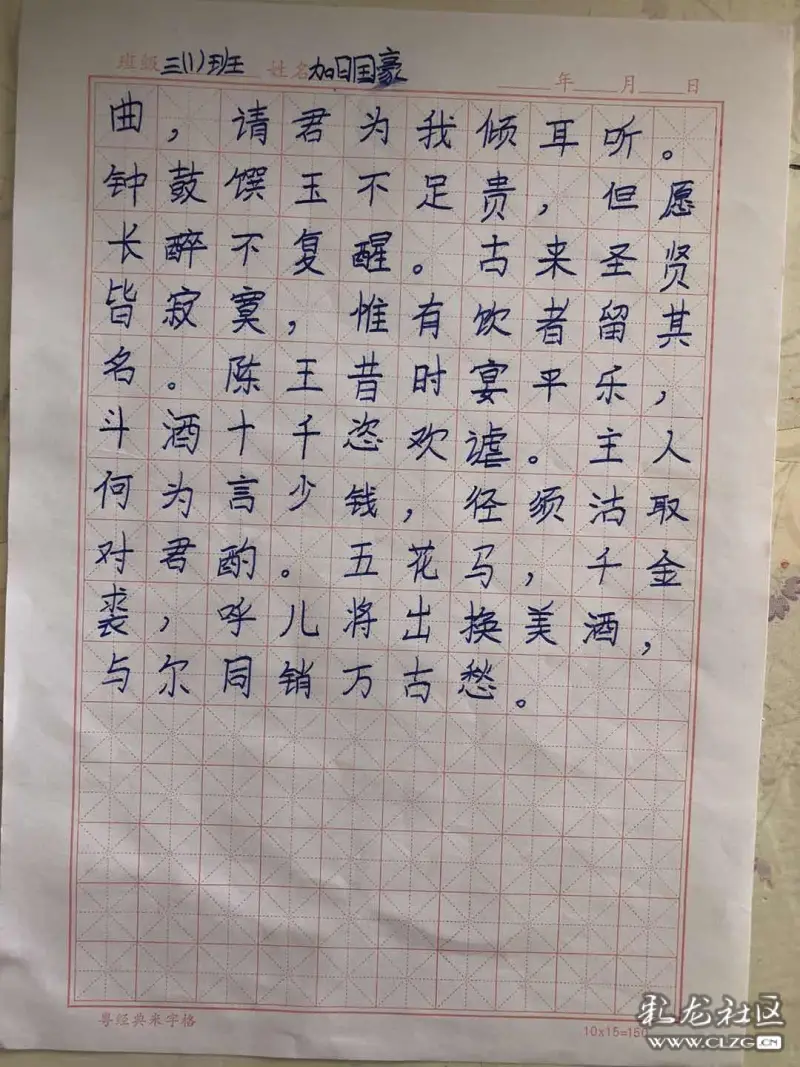 班级 三(1)班 姓名 加日国豪 年 月 日
曲，请君为我倾耳听。
钟鼓馔玉不足贵，但愿
长醉不复醒。古来圣贤
皆寂寞，惟有饮者留其
名。陈王昔时宴平乐，
斗酒十千恣欢谑。主人
何为言少钱，径须沽取
对君酌。五花马，千金
裘，呼儿将出换美酒，
与尔同销万古愁。
粤经典米字格
10x15=150
礼龙社区
WWW.CLZG.CN